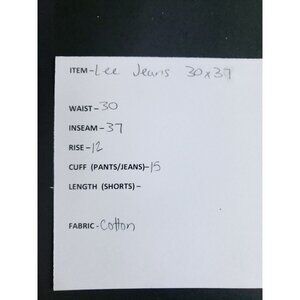 ITEM-Lee Jeans 30x37
WAIST-30
INSEAM-37
RISE-12
CUFF (PANTS/JEANS)-15
LENGTH (SHORTS)-
FABRIC-Cotton